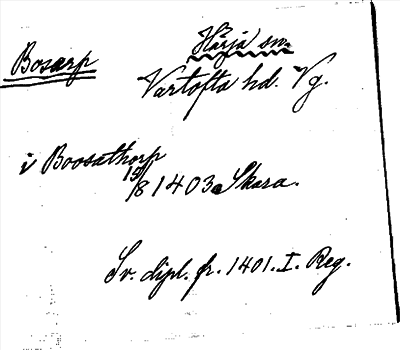 Bosarp
Härja sn.
Vartofta hd. Vg.
i Boosathorp
15/8 1403 Skara.
Sv. dipl. fr. 1401. I. Reg.